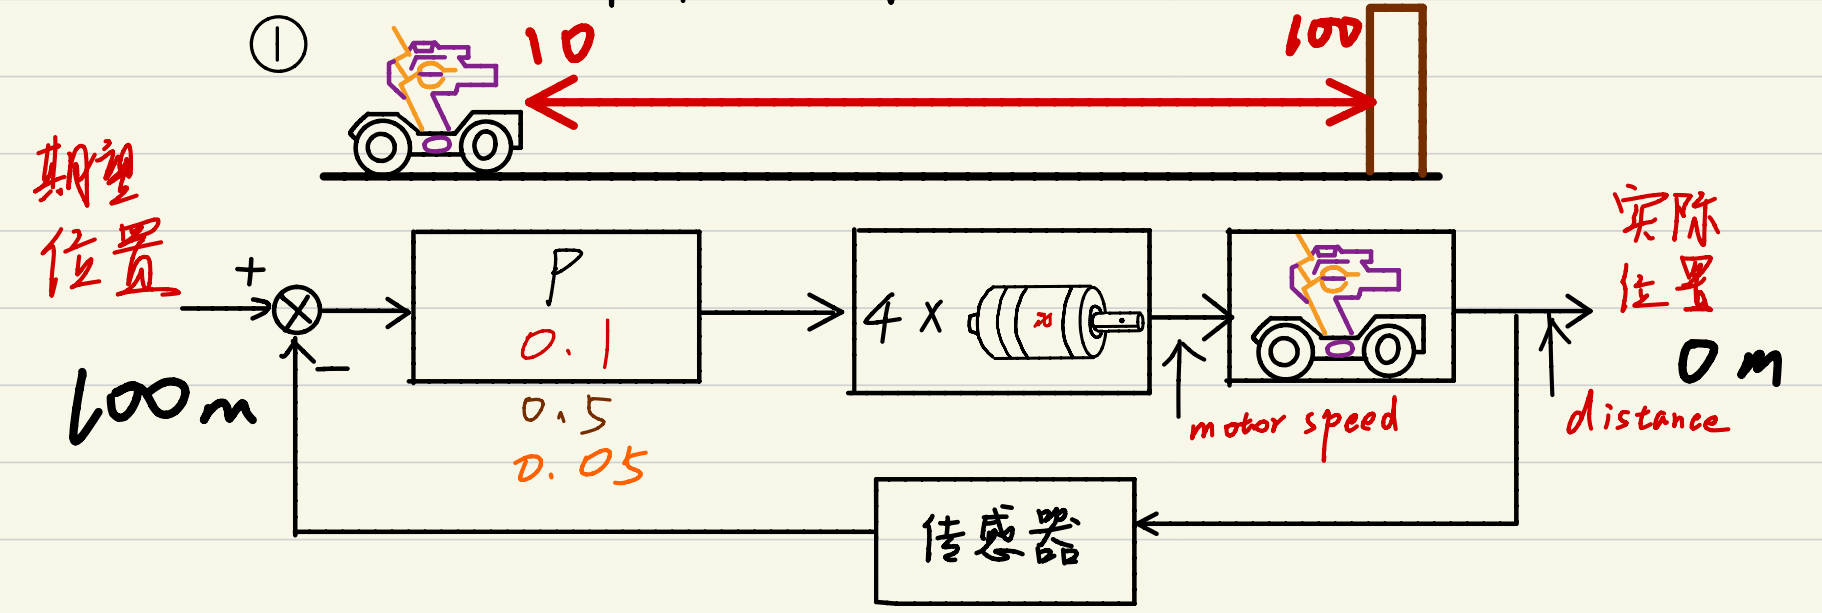 ①
10
100
期望
位置
+
−
100m
P
0.1
0.5
0.05
4 ×
motor speed
实际
位置
0 m
distance
传感器